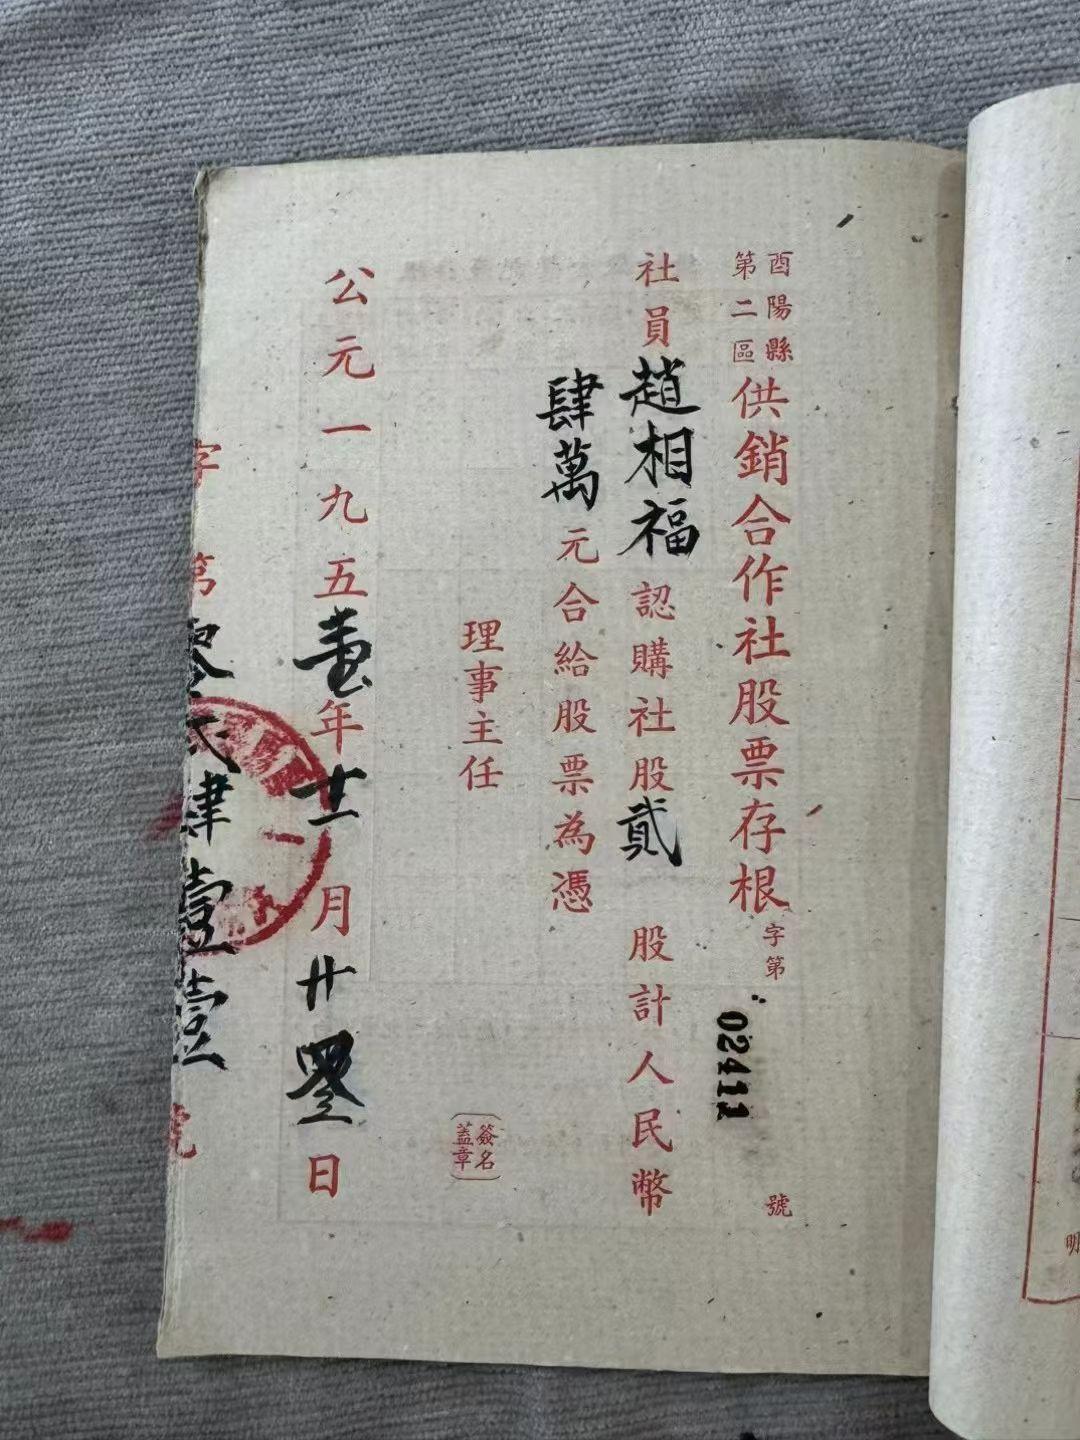 酉陽縣
第二區
供銷合作社股票存根字第02411號
社員趙相福認購社股貳股計人民幣
肆萬元合給股票為憑
理事主任
簽名
蓋章
公元一九五壹年十二月廿日
字第零貳肆壹壹號
明